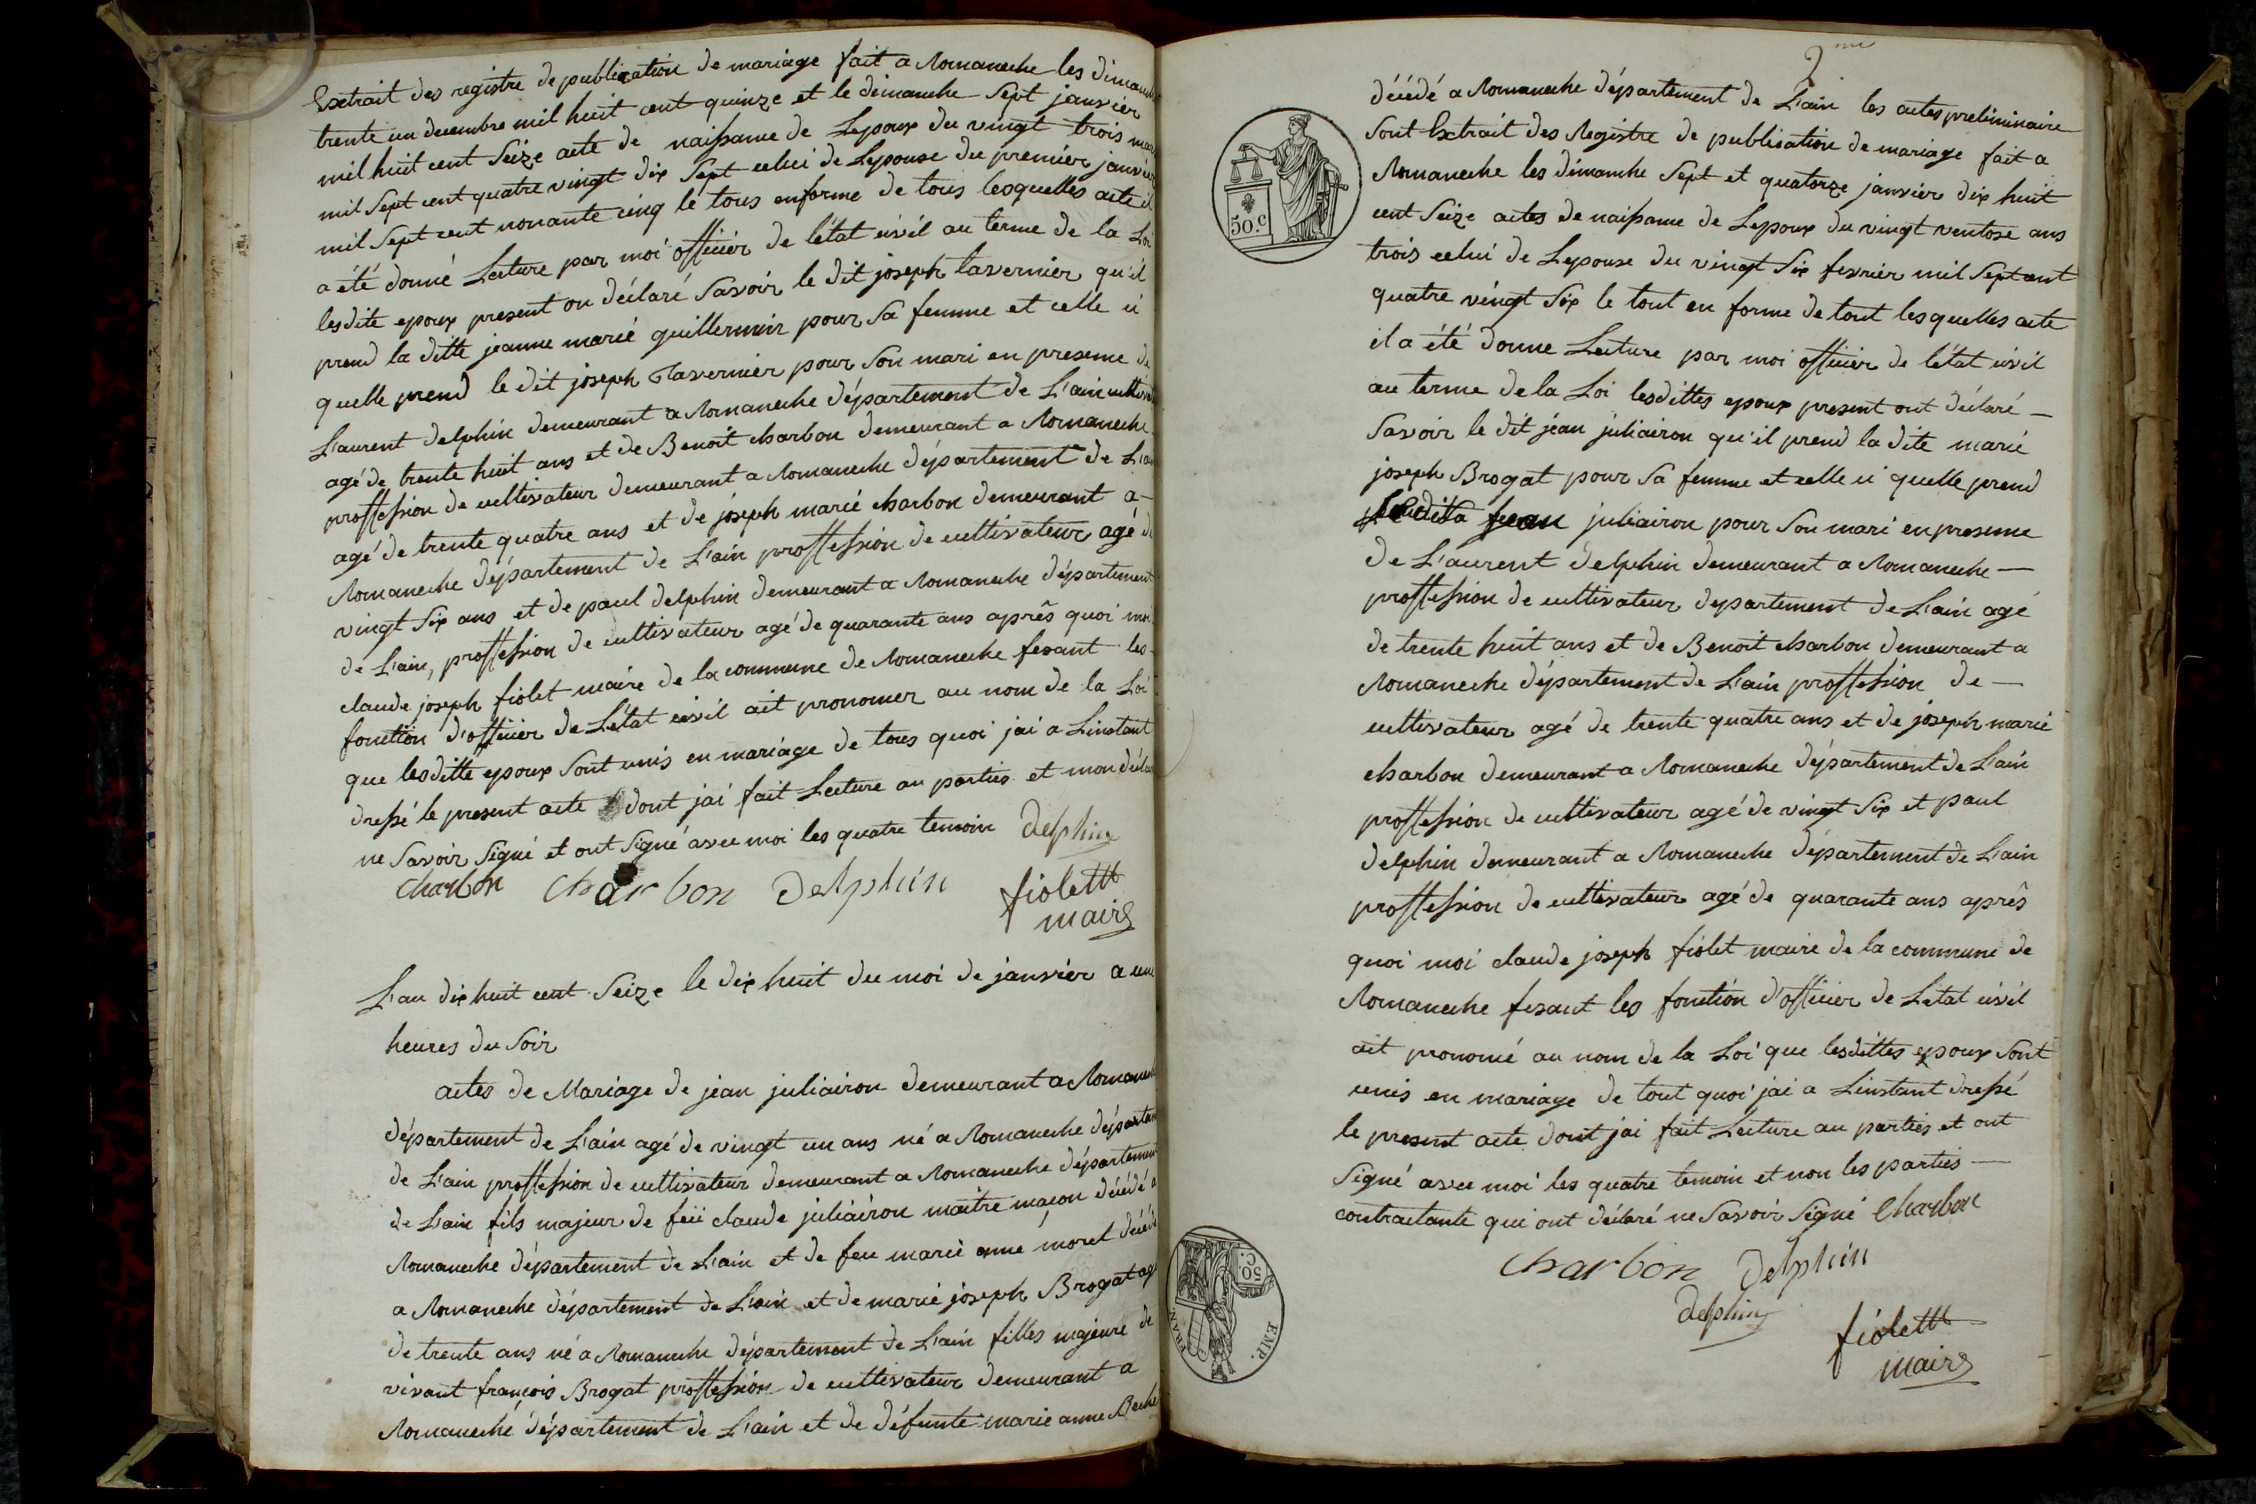 Extrait des registre de publication de mariage fait a Romaneche les dimanche
trente un decembre mil huit cent quinze et le dimanche Sept janvier
mil huit cent Seize acte de naissance de Lepoux du vingt trois mars
mil Sept cent quatre vingt dix Sept celui de Lepouse du premier janvier
mil Sept cent nonante cinq le tous enforme de tous lesquelles acte il
a été donné Lecture par moi officier de létat civil au terme de la Loi
lesdite epoux present on déclaré Savoir le dit joseph tavernier qu'il
prend la ditte jeanne marie guillermin pour Sa femme et celle ci
quelle prend le dit joseph Tavernier pour Son mari en presence de
L'aurent delphin demeurant a Romaneche département de L'ain cultivateur
agé de trente huit ans et de Benoit charbon demeurant a Romaneche
proffession de cultivateur demeurant a Romaneche département de L'ain
agé de trente quatre ans et de joseph marie charbon demeurant a
Romaneche département de L'ain proffession de cultivateur agé de
vingt Six ans et de paul delphin demeurant a Romaneche département
de L'ain, proffession de cultivateur agé de quarante ans après quoi moi
claude joseph fiolet maire de la commune de Romaneche fesant les
fonction d'officier de L'état civil ait prononcer au nom de la Loi
que lesditte epoux Sont unis en mariage de tous quoi jai a Linstant
dressé le present acte dont jai fait Lecture au parties et mon déclaré
ne Savoir Signé et ont Signé avec moi les quatre temoin delphin
Charbon Charbon Delphin fiolett
maire
L'an dix huit cent Seize le dix huit du moi de janvier a une
heures du Soir
actes de Mariage de jean juliairon demeurant a Romaneche
département de L'ain agé de vingt un ans né a Romaneche département
de L'ain proffession de cultivateur demeurant a Romaneche département
de L'ain fils majeur de feü claude juliairon maitre maçon décédé a
Romaneche département de L'ain et de feu marie anne moret décédé
a Romaneche département de L'ain et de marie joseph Brogat agé
de trente ans né a Romaneche département de L'ain filles majeure de
vivant françois Brogat proffession de cultivateur demeurant a
Romaneche département de L'ain et de défunte marie anne
2me
décédé a Romaneche département de L'ain les actes preliminaire
Sont Extrait des Registre de publication de mariage fait a
Romaneche les dimanche Sept et quatorze janvier dix huit
cent Seize actes de naissance de Lepoux du vingt ventose ans
trois celui de Lepouse du vingt Six fevrier mil Sept cent
quatre vingt Six le tout en forme de tout lesquelles acte
il a été donne Lecture par moi officier de létat civil
au terme de la Loi lesdittes epoux present ont déclaré —
Savoir le dit jean juliairon qu'il prend la dite marie
joseph Brogat pour Sa femme et celle ci quelle prend
jean juliairon pour Son mari en presence
de L'aurent delphin demeurant a Romaneche —
proffession de cultivateur departement de L'ain agé
de trente huit ans et de Benoit charbon demeurant a
Romaneche département de L'ain proffession de —
cultivateur agé de trente quatre ans et de joseph marie
charbon demeurant a Romaneche département de L'ain
proffession de cultivateur agé de vingt Six et paul
delphin demeurant a Romaneche département de L'ain
proffession de cultivateur agé de quarante ans après
quoi moi claude joseph fiolet maire de la commune de
Romaneche fesant les fonction d'officier de Létat civil
ait prononcé au nom de la Loi que lesdittes epoux Sont
unis en mariage de tout quoi jai a Linstant dressé
le present acte dont jai fait Lecture au parties et ont
Signé avec moi les quatre temoin et non les parties —
contractante qui ont déclaré ne Savoir Signé Charbon
Charbon Delphin
delphin
fiolett
maire
50.c
50.C.
EMP. FRAN.